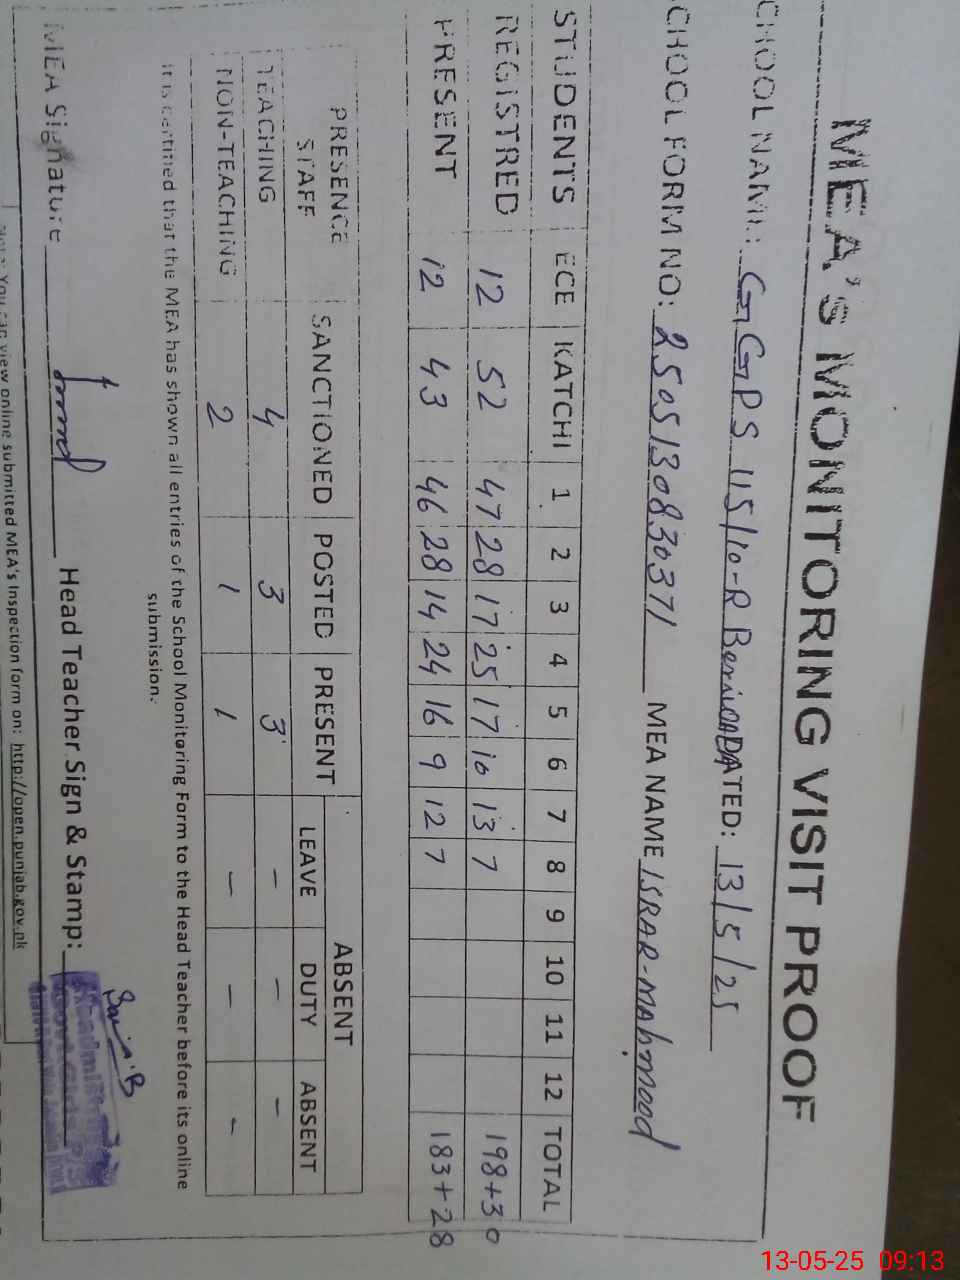 MEA'S MONITORING VISIT PROOF
CHOOL NAME: GGPS 115/10-R DATED: 13/5/25
CHOOL FORM NO: 250513083037/ MEA NAME ISRAR-MAHMOOD
STUDENTS ECE KATCHI 1 2 3 4 5 6 7 8 9 10 11 12 TOTAL
REGISTRED 12 52 47 28 17 25 17 10 13 7 198+30
PRESENT 12 43 46 28 14 24 16 9 12 7 183+28
PRESENCE STAFF SANCTIONED POSTED PRESENT ABSENT
LEAVE DUTY ABSENT
TEACHING 4 3 3 - - -
NON-TEACHING 2 1 1 - - -
It is certified that the MEA has shown all entries of the School Monitoring Form to the Head Teacher before its online
submission.
MEA Signature Head Teacher Sign & Stamp:
You can view online submitted MEA's Inspection form on: http://open.punjab.gov.pk
13-05-25 09:13